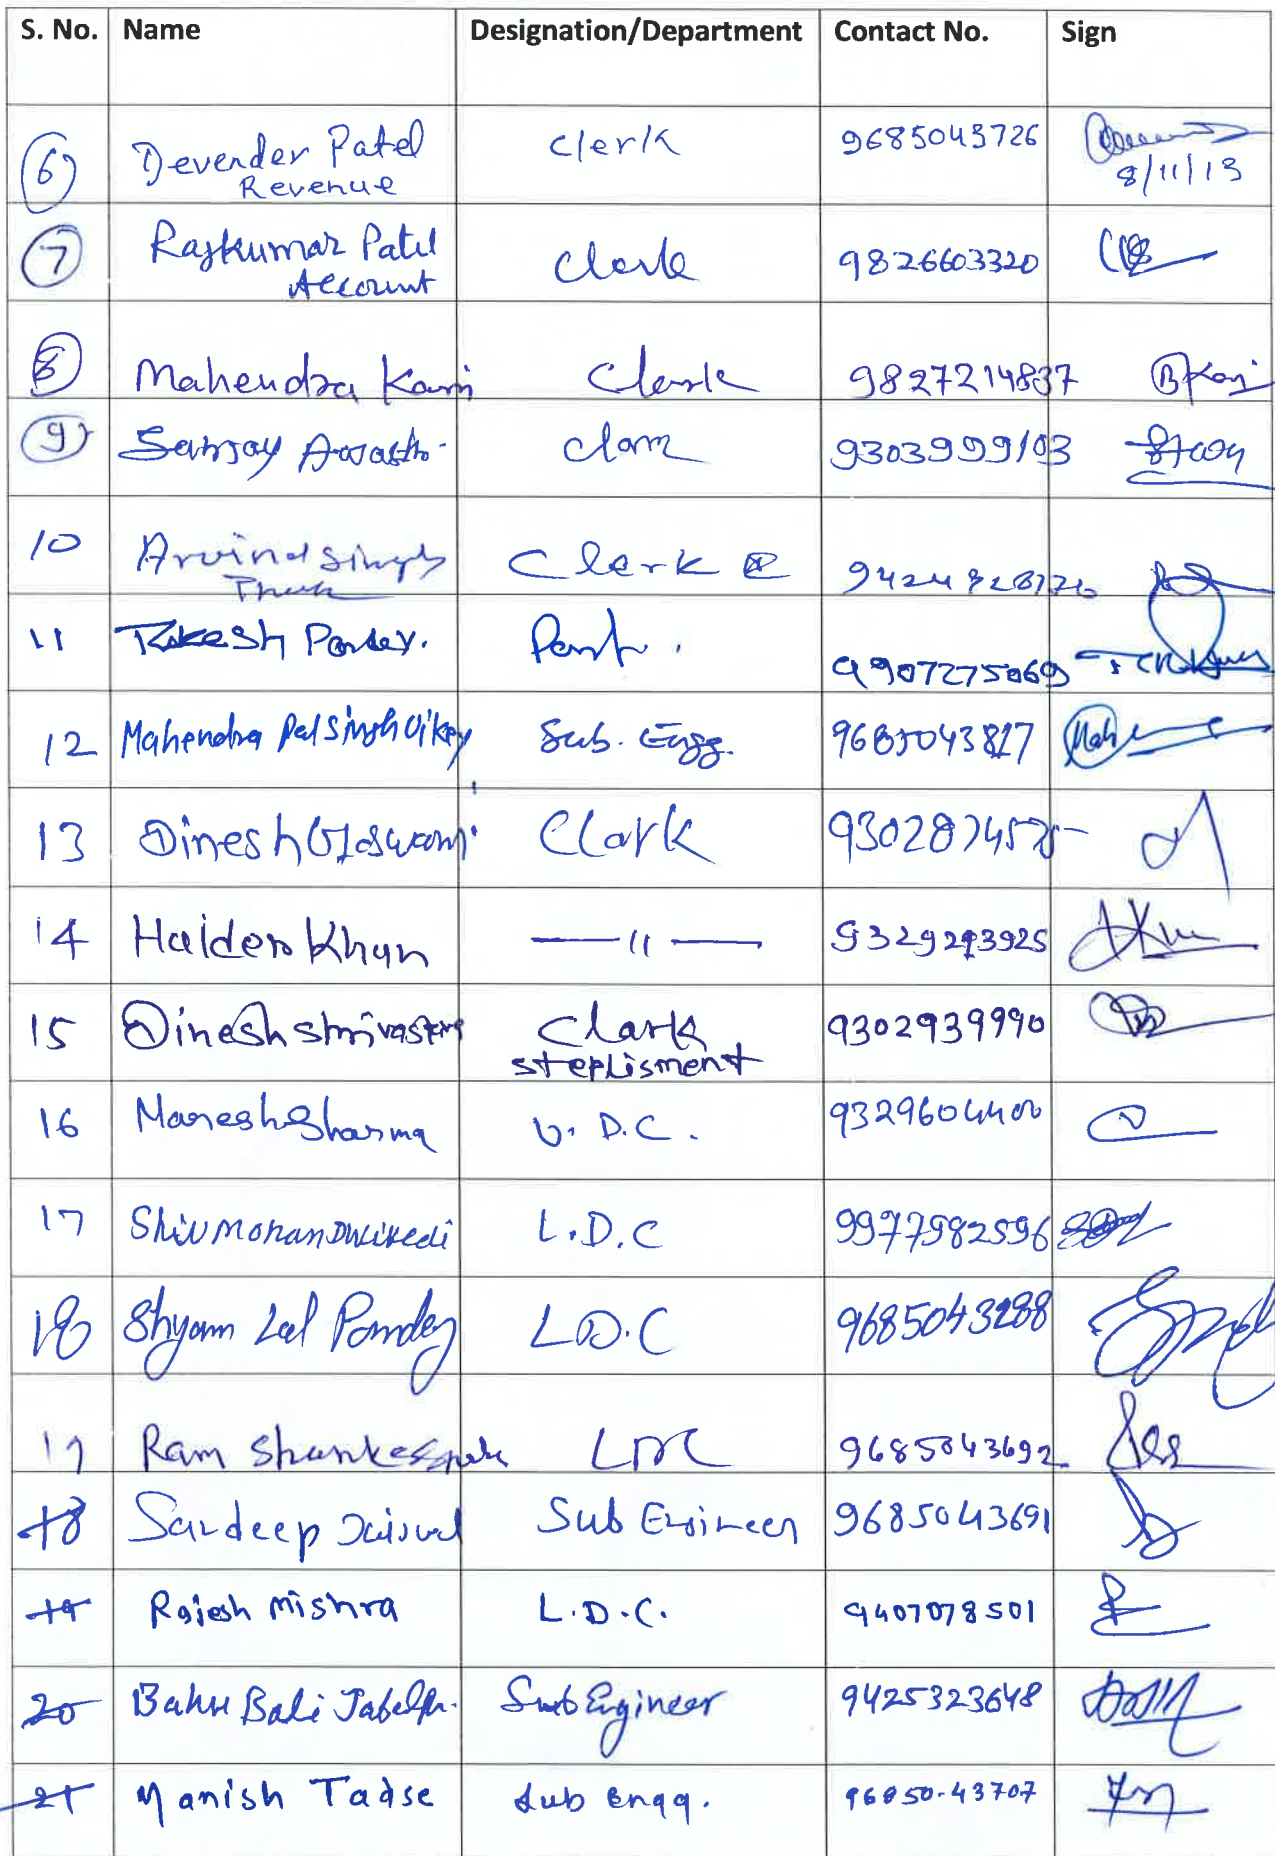 S. No. Name Designation/Department Contact No. Sign
6 Devender Patel Clerk 9685043726
Revenue 8/11/13
7 Rajkumar Patel Clerk 9826603320
Account
8 Mahendra Clerk 9827214837
9 Sanjay clerk 9303999103
10 Arvind Singh Clerk
11 Pandey. 9907275069
12 Mahendra Pal Singh Uikey Sub. Engg. 9685043827
13 Dinesh Goswami Clark
14 Haider Khan — 11 — 9329293925
15 Dinesh shrivastava Clark 9302939990
steplisment
16 Manesh Sharma U. D.C. 9329604400
17 Shiv Mohan Dwivedi L.D.C 9977982596
18 Shyam Lal Pandey L.D.C 9685043288
19 Ram Shanker LDC 9685043692
18 Sandeep Jaiswal Sub Engineer 9685043691
19 Rajesh Mishra L.D.C. 9407078501
20 Bahu Bali Sub Engineer 9425323648
21 Manish Tadse Sub engg. 96850-43707